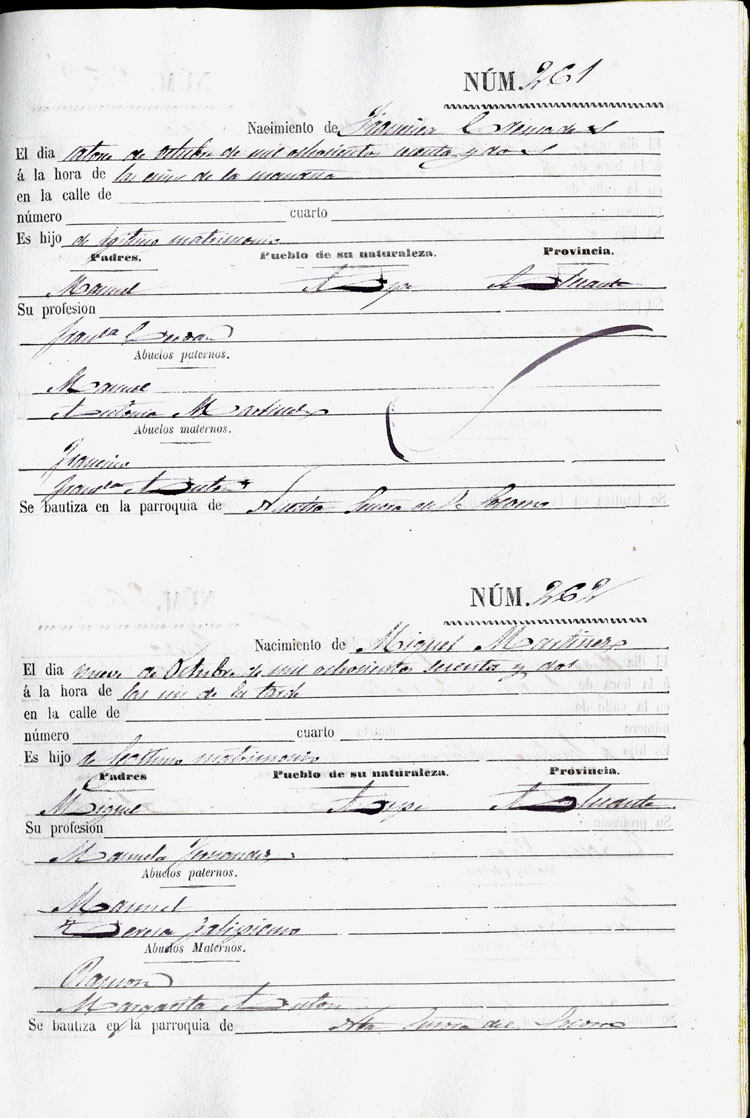 NÚM. 261
Nacimiento de
El dia catorce de Octubre de mil ochocientos sesenta y dos
á la hora de las cinco de la mañana
en la calle de
número cuarto
Es hijo de legitimo matrimonio
Padres. Pueblo de su naturaleza. Provincia.
Manuel Aspe Alicante
Su profesion
Franca
Abuelos paternos.
Manuel
Antonia Martinez
Abuelos maternos.
Francisco
Franca
Se bautiza en la parroquia de Nuestra Senora del Socorro
NÚM. 262
Nacimiento de Miguel Martinez
El dia nueve de Octubre de mil ochocientos sesenta y dos
á la hora de las de la tarde
en la calle de
número cuarto
Es hijo de legitimo matrimonio
Padres Pueblo de su naturaleza. Provincia.
Miguel Aspe Alicante
Su profesion
Manuela Fernandez
Abuelos paternos.
Manuel
Teresa
Abuelos Maternos.
Ramon
Margarita
Se bautiza en la parroquia de Ntra Senora del Socorro